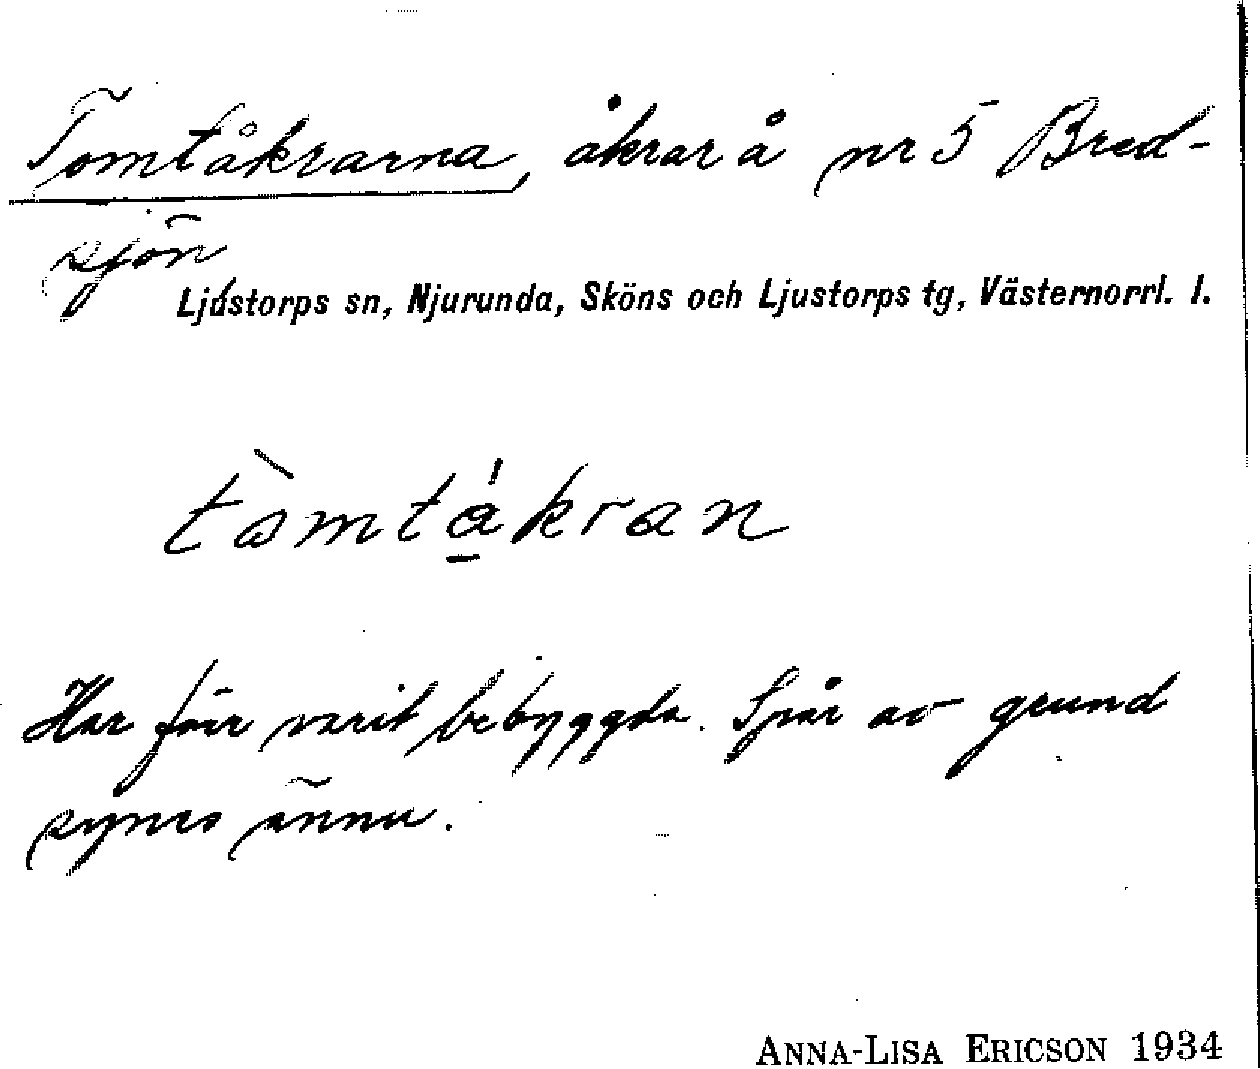 Tomtåkrarna, åkrar å nr 5 Bred-
sjön
Ljustorps sn, Njurunda, Sköns och Ljustorps tg, Västernorrl. l.
tòmtǻ̱kran
Har förr varit bebyggda. Spår av grund
synes ännu.
ANNA-LISA ERICSON 1934